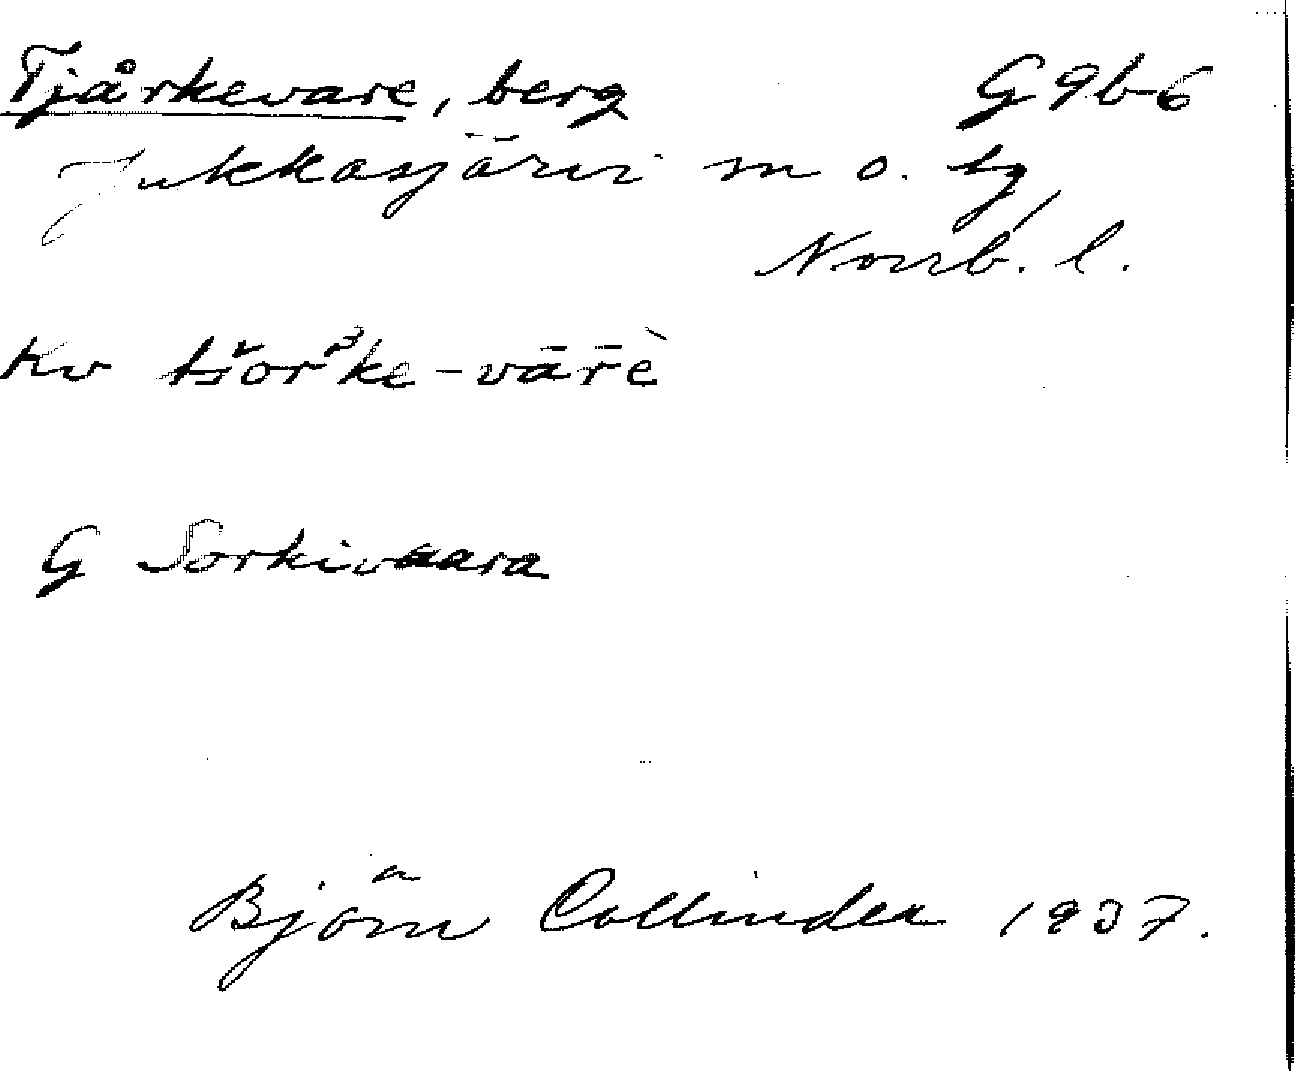 Tjårkevare, berg G 9b-6
Jukkasjärvi sn o. tg
Norrb. l.
Kv tšorᵊke-vārè
G Sorkivaara
Björn Collinder 1937.